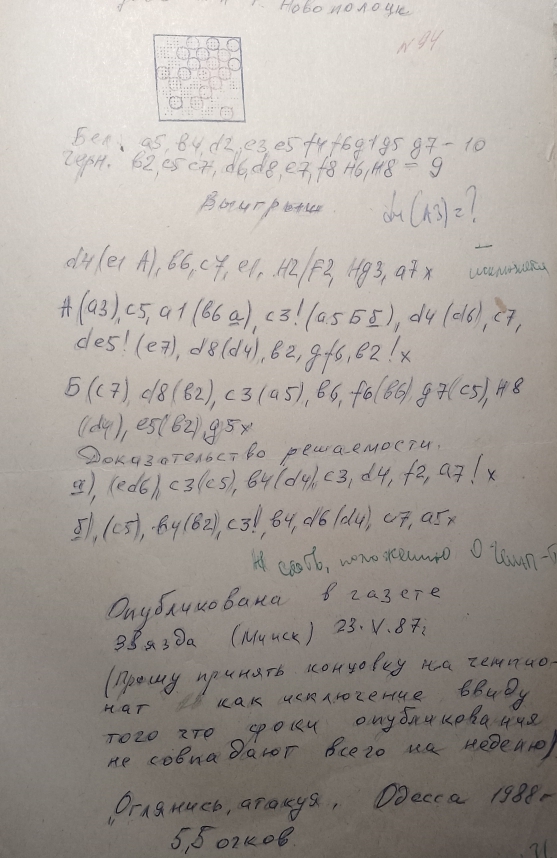 г. Новополоцк
№94
Бел. a5, в4, d2, e3, e5 f4 f6 g1 g5 g7 - 10
Черн. в2, c5 c7, d6, d8, e7, f8 H6, H8 = 9
Выигрыш
d4 (A3) = ?
d4 (e1 A), в6, c7, e1, H2/F2, Hg3, a7 x
A (a3), c5, a1 (в6 a), c3! (a5 Б б), d4 (d6), c7,
de5! (e7), d8 (d4), в2, gf6, в2! x
Б (c7), d8 (в2), c3 (a5), в6, f6 (в6) g7 (c5), H8
(d4), e5 (в2) g5x
Доказательство решаемости.
a), (ed6), c3 (c5), в4 (d4), c3, d4, f2, a7! x
б), (c5), в4 (в2), c3!, в4, d6 (d4), c7, a5x
положению о чемп-
Опубликована в газете
Звязда (Минск) 23.V.87г
(Прошу принять концовку на чемпио-
нат как исключение ввиду
того что сроки опубликования
не совпадают всего на неделю)
"Оглянись, атакуя, Одесса 1988 г
5,5 очков